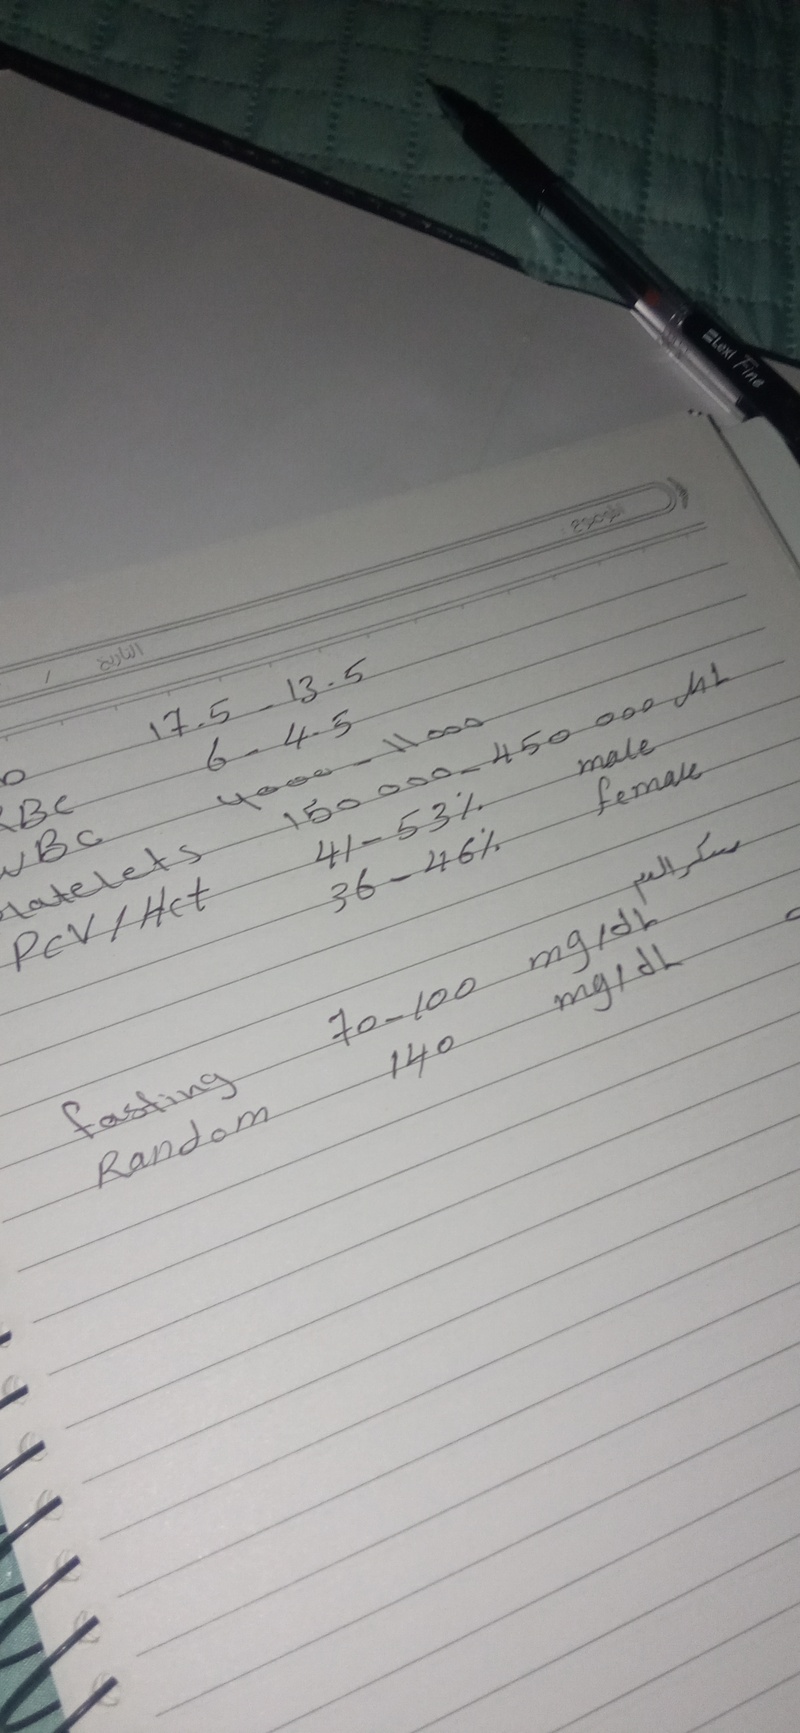 ELexi Fine
الموضوع:
التاريخ /
17.5 - 13.5
RBC 6 - 4.5
WBC 4000 - 11000
Platelets 150 000 - 450 000
PCV / Hct 41 - 53% male
36 - 46% female
سكر الدم
fasting 70 - 100 mg/dL
Random 140 mg/dL